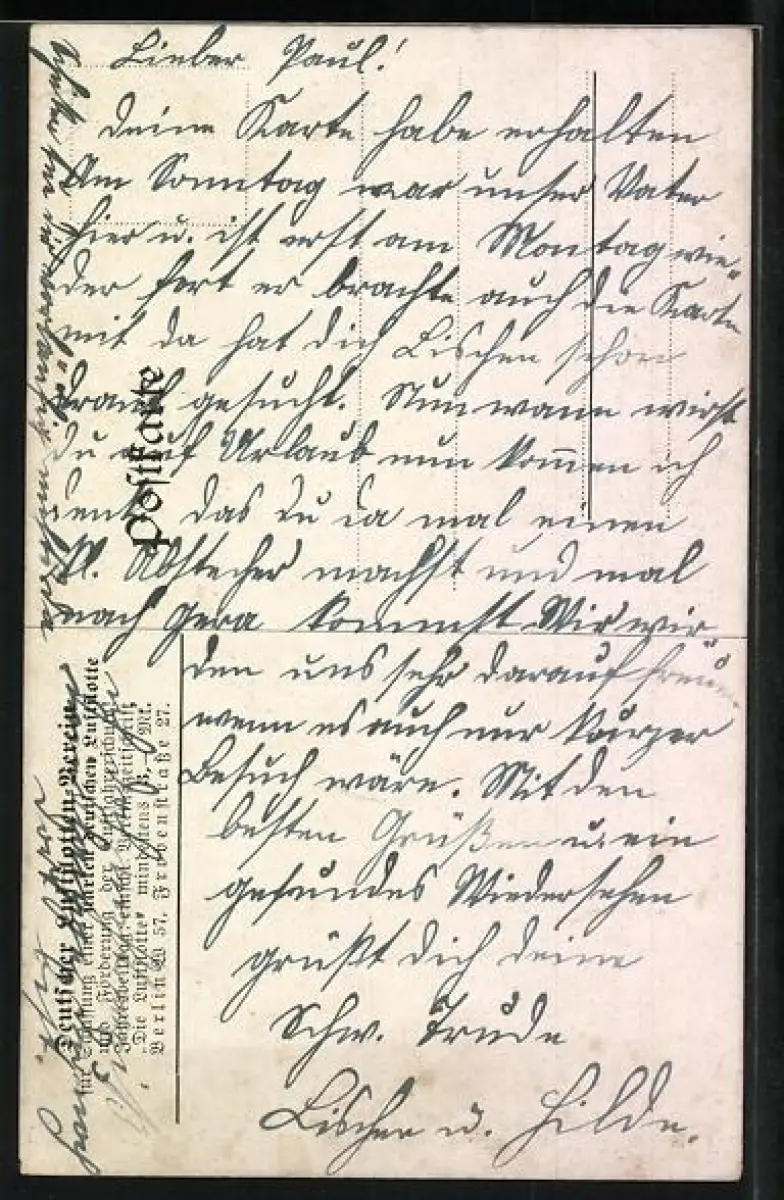 Lieber Paul!
deine Karte habe erhalten
Am Sonntag war unser Vater
hier u. ist erst am Montag wie„
der fort er brachte auch die Karte
mit da hat dich Lischen schon
drauf gesucht. Nun wann wirst
du auf Urlaub nun kommen ich
denk das du da mal einen
kl. Abstecher machst und mal
nach Gera kommst Wir wür„
den uns sehr darauf freuen
wenn es auch nur kurzer
Besuch wäre. Mit den
besten Grüßen u. ein
gesundes Wiedersehen
grüßt dich deine
Schw. Trude
Lischen u. Hilde.
Postkarte
Deutscher Luftflotten-Verein
für Schaffung einer starken deutschen Luftflotte
und Förderung der Luftfahrerschulen
Jahresbeitrag einschl. Vereinszeitschrift
„Die Luftflotte“ mindestens 3,— Mk.
Berlin W 57, Frobenstraße 27.